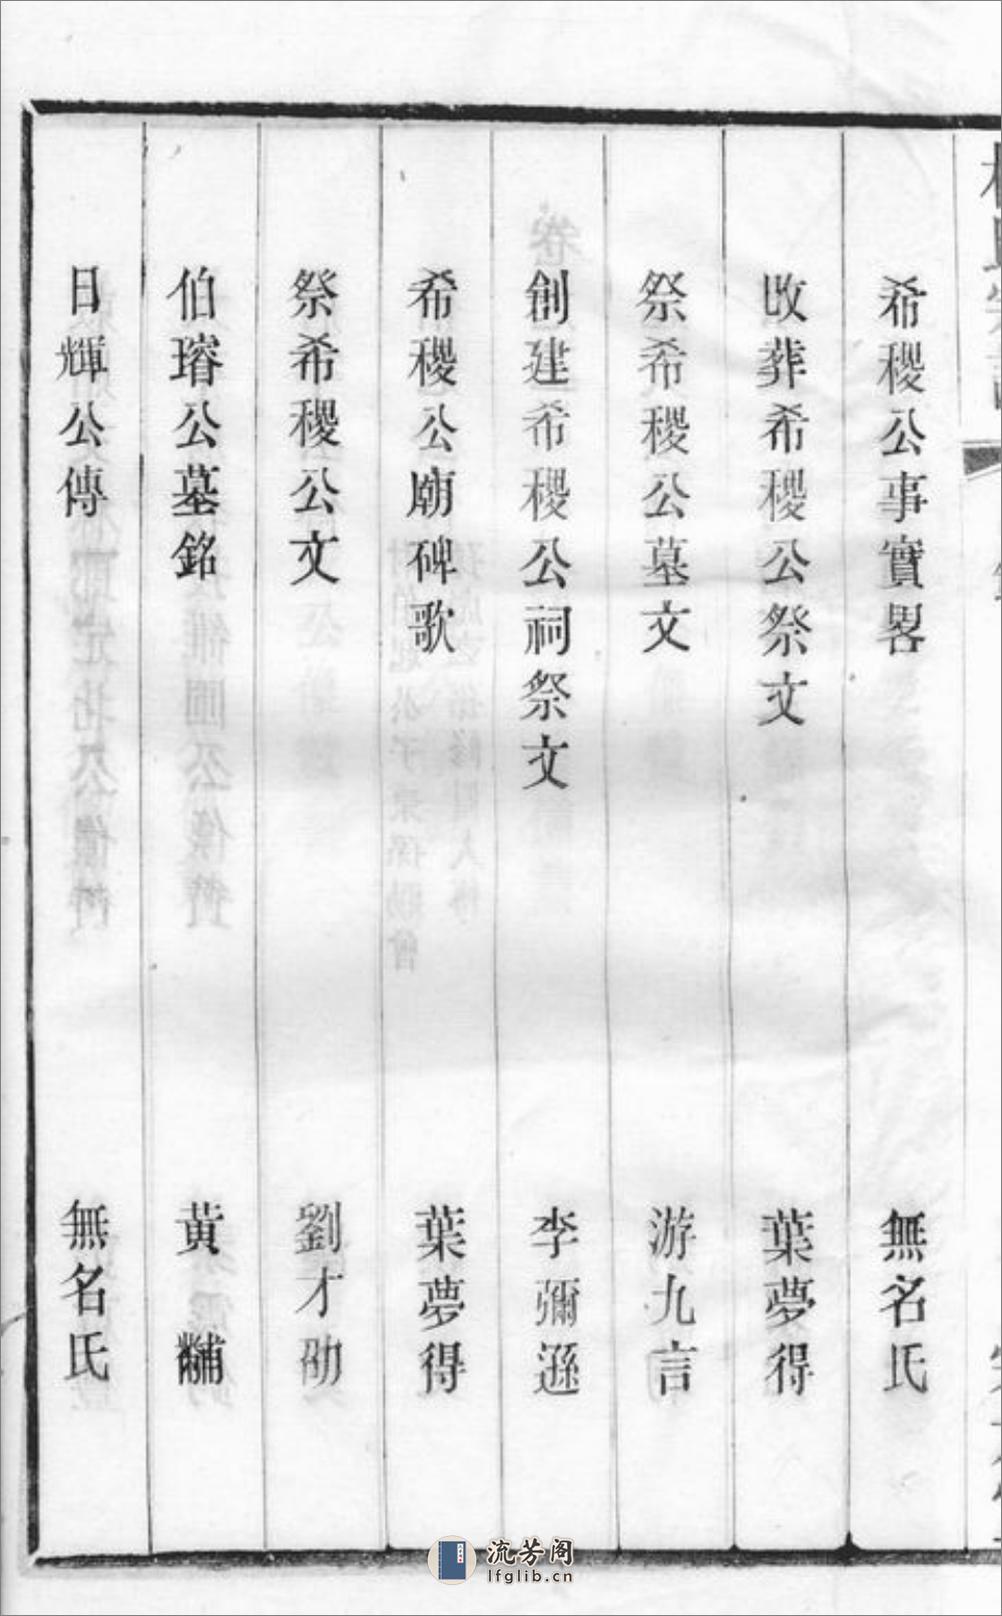 希稷公事實畧 無名氏
收葬希稷公祭文 葉夢得
祭希稷公墓文 游九言
創建希稷公祠祭文 李彌遜
希稷公廟碑歌 葉夢得
祭希稷公文 劉才劭
伯璿公墓銘 黃黼
日輝公傳 無名氏
流芳阁
lfglib.cn